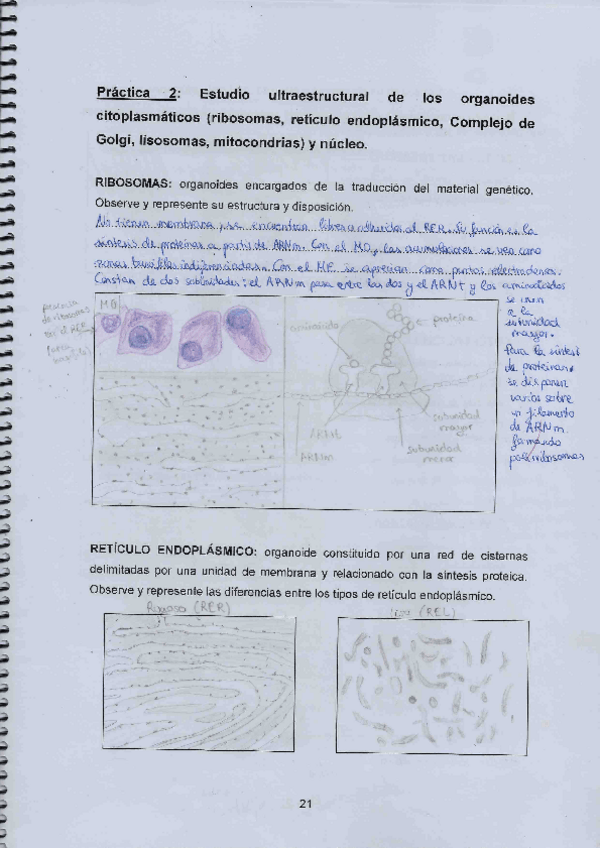 Práctica 2: Estudio ultraestructural de los organoides
citoplasmáticos (ribosomas, retículo endoplásmico, Complejo de
Golgi, lisosomas, mitocondrias) y núcleo.
RIBOSOMAS: organoides encargados de la traducción del material genético.
Observe y represente su estructura y disposición.
No tienen membrana, se encuentran libres o adheridos al RER. Su función es la
síntesis de proteínas a partir de ARNm. Con el MO, las acumulaciones se ven como
zonas basófilas indiferenciadas. Con el ME se aprecian como puntos electrodensos.
Constan de dos subunidades: el ARNm pasa entre las dos y el ARNt y los aminoácidos
se unen
a la
subunidad
mayor.
Para la síntesis
de proteínas,
se disponen
varios sobre
un filamento
de ARNm
formando
polirribosomas
presencia
de ribosomas
en el RER
MO
aminoácido
proteína
subunidad
mayor
ARNt
ARNm
subunidad
menor
RETÍCULO ENDOPLÁSMICO: organoide constituido por una red de cisternas
delimitadas por una unidad de membrana y relacionado con la síntesis proteica.
Observe y represente las diferencias entre los tipos de retículo endoplásmico.
Rugoso (RER)
Liso (REL)
21